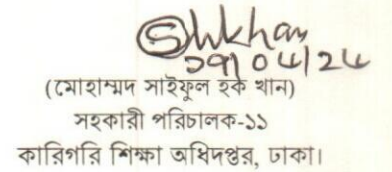 ১৭/০৪/২৪
(মোহাম্মদ সাইফুল হক খান)
সহকারী পরিচালক-১১
কারিগরি শিক্ষা অধিদপ্তর, ঢাকা।